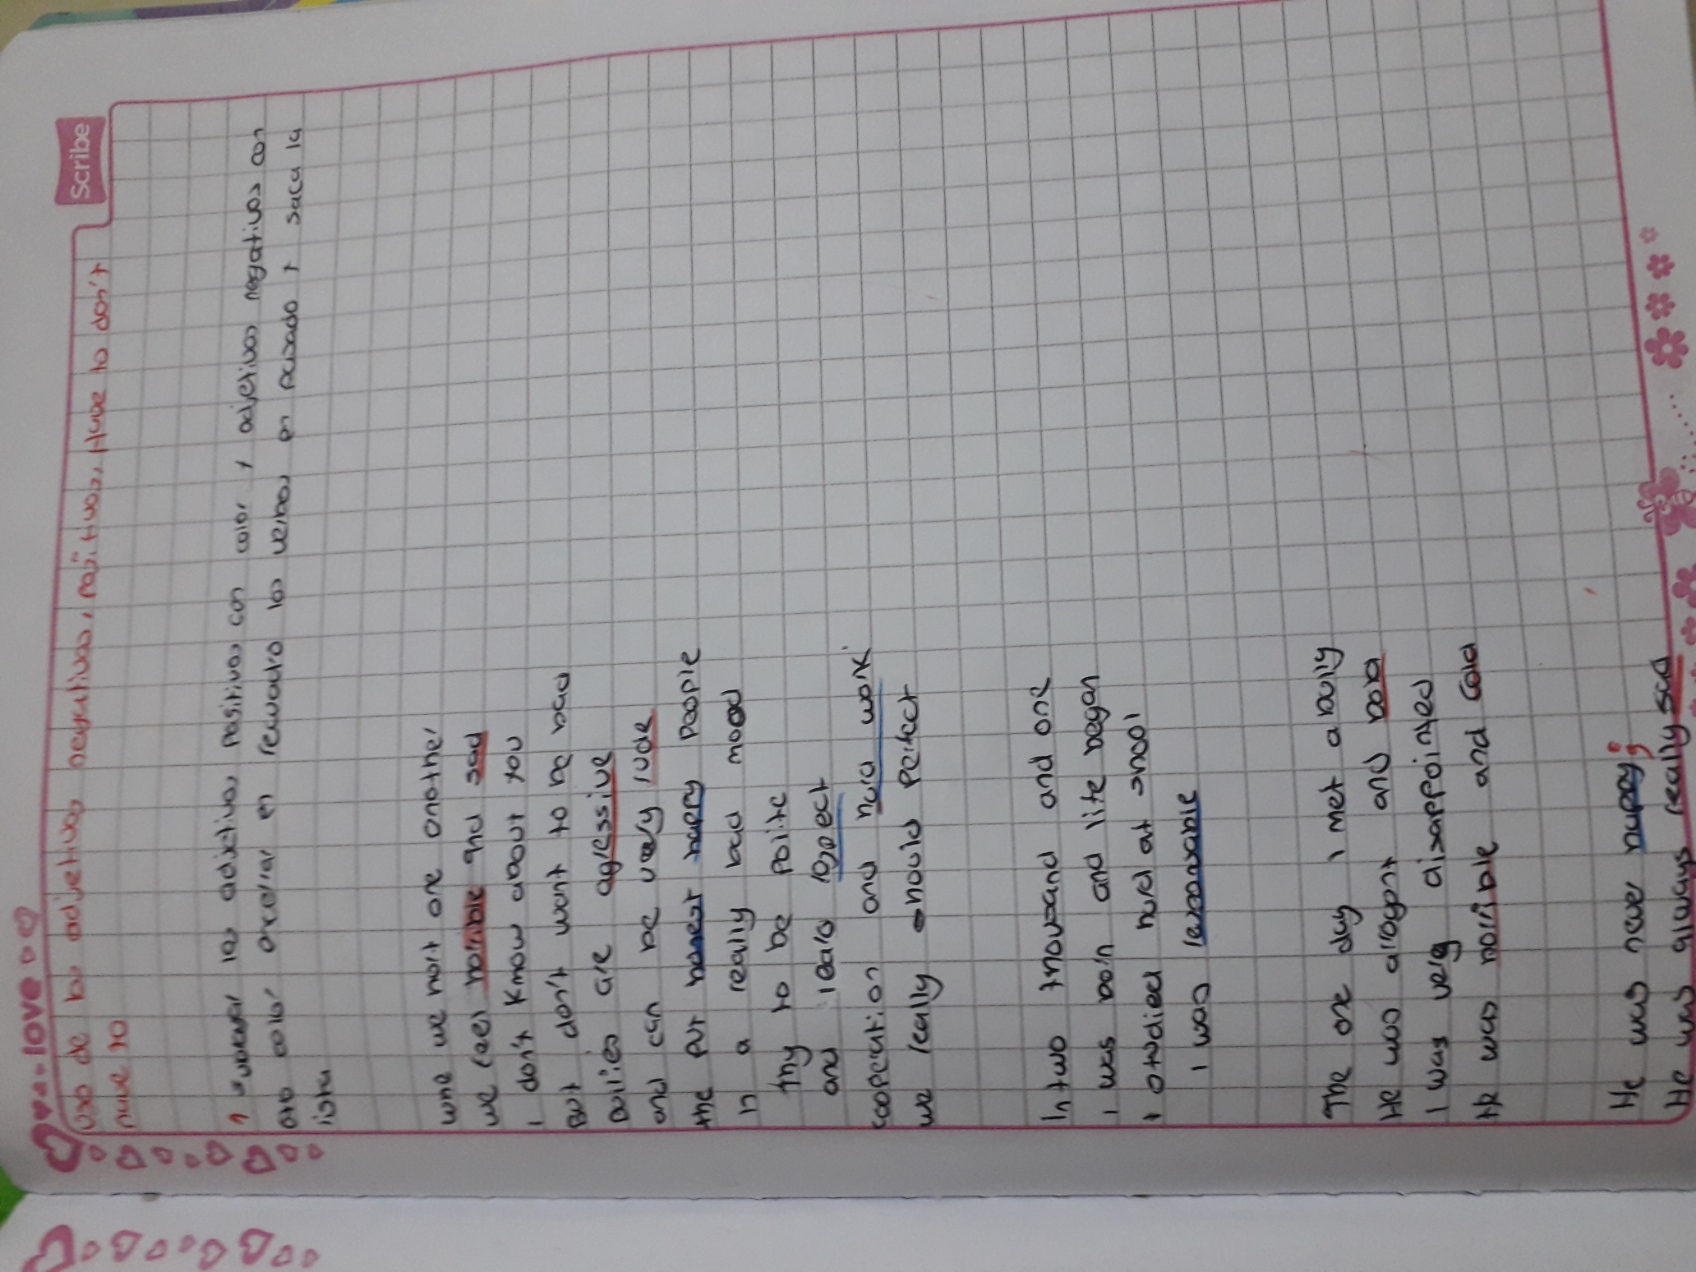 love
Scribe
uso de los adjetivos negativos, positivos, Have to don't
have to
1 subrayar los adjetivos positivos con color y adjetivos negativos con
otro color encerrar en recuadro los verbos en pasado y saca la
lista
we hort one another
we feel horrible and sad
I don't know about you
But don't want to be bad
Bullies are agressive
and can be very rude
the put honest happy people
in a really bad mood
Try to be polite
and learo respect
cooperation and hard work
we really should perfect
In two thousand and one
I was born and life began
I studied hard at shool
I was
The one day I met a bully
He was arrogant and bold
I was very disappointed
He was horrible and cold
He was never happy
He was always really sad